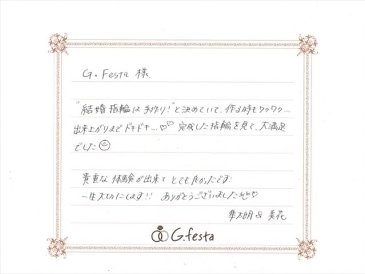 G. Festa 様
"結婚指輪は手作り!"と決めていて、作る時もワクワク…
出来上がりまでドキドキ…♡♡ 完成した指輪を見て、大満足
でした☺
貴重な体験が出来てとても良かったです!
一生大切にします!! ありがとうございました♡♡
&
G.festa